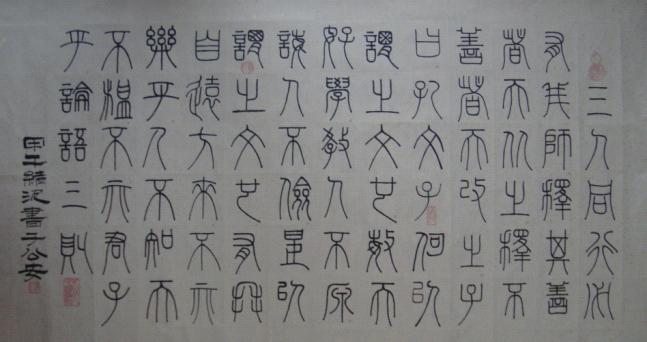 三人同行必
有我師擇其善
者而从之擇不
善者而改之子
曰孔文子何以
謂之文也敏而
好學教人不
誨人不倦是以
謂之文也有朋
自遠方來不亦
樂乎人不知而
不慍不亦君子
乎論語三則
書于公安